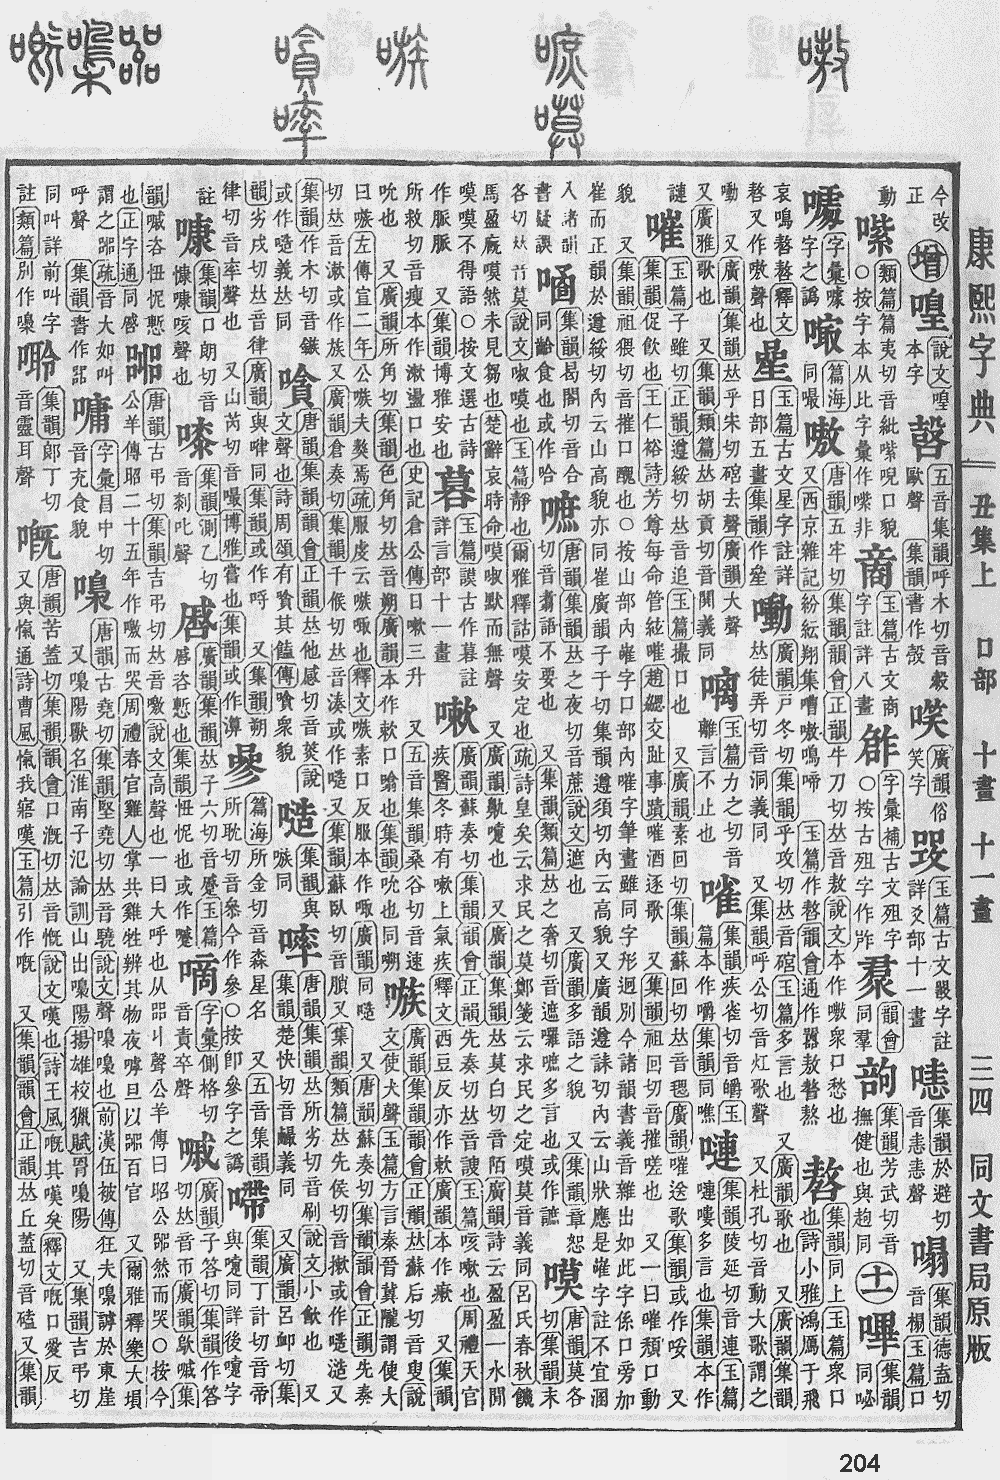 康熙字典 丑集上 口部 十畫 十一畫 三四 同文書局原版
今改正 增 說文喤本字 五音集韻呼木切音縠歐聲 集韻書作㱿 廣韻俗笑字 玉篇古文嚴字註詳爻部十一畫 集韻於避切音恚恚聲 集韻德盍切音榻玉篇口
動 類篇篇夷切音紕 口貌 ○按字本从比字彙作 非 玉篇古文商字註詳八畫 字彙補古文殂字 ○按古殂字作 韻會同羣 集韻芳武切音撫健也與 同 十一 嗶 集韻同
字彙 字之譌 篇海同嘬 嗷 唐韻五牢切集韻韻會正韻牛刀切𠀤音敖說文本作嗸衆口愁也 又西京雜記紛紜翔集嘈嗷鳴啼 玉篇作謷韻會通作嚻敖謷熬 嗸 玉篇衆口也詩小雅鴻鴈于飛
哀鳴嗸嗸釋文嗸又作嗷聲也 玉篇古文星字註詳日部五畫集韻作曐 嘞 廣韻戸冬切集韻乎攻切𠀤音 玉篇多言也 又廣韻歌也 又廣韻集韻𠀤徒弄切音洞義同 又集韻呼公切音灴歌聲 又杜孔切音動大歌謂之
嘞 又廣韻集韻𠀤乎朱切 去聲廣韻大聲 又廣雅歌也 又集韻類篇𠀤胡貢切音鬨義同 嗺 玉篇力之切音離言不止也 嗺 集韻疾雀切音皭玉篇本作嚼集韻同噍 嗹 集韻陵延切音連玉篇嗹嘍多言也 集韻本作
謰 嗺 玉篇子雖切正韻遵綏切𠀤音追玉篇撮口也 又廣韻素回切集韻蘇回切𠀤音毸廣韻嗺送歌集韻或作 又集韻促飲也王仁裕詩芳尊每命管絃嗺趙勰交趾事蹟嗺酒逐歌 又集韻祖回切音摧嗟也 又一曰嗺頹口動
貌 又集韻祖猥切音摧口醜也○按山部內 字口部內嗺字筆畫雖同字形迥別今諸韻書義音雜出如此字係口旁加
崔而正韻於遵綏切內云山高貌亦同崔廣韻子于切集韻遵須切內云高貌又廣韻遵誄切內云山狀應是 字註不宜溷
入諸韻書疑誤 集韻曷閣切音合同 食也或作哈 嗻 唐韻集韻𠀤之夜切音蔗說文遮也 又廣韻多語之貌 又集韻章恕切音翥語不要也 又集韻類篇𠀤之奢切音遮囉嗻多言也 或作讍 嗼 唐韻莫各切集韻末
各切𠀤音莫說文㖡嗼也玉篇靜也爾雅釋詁嗼安定也疏詩皇矣云求民之莫鄭箋云求民之定莫音義同呂氏春秋饑
馬盈廐嗼然未見芻也楚辭哀時命嗼㖡默而無聲 又廣韻集韻𠀤莫白切音陌廣韻詩云盈盈一水閒
嗼嗼不得語○按文選古詩作脈脈 又集韻博雅安也 玉篇謨古作暮註詳言部十一畫 嗽 廣韻蘇奏切集韻韻會正韻先奏切𠀤音謏玉篇咳嗽也周禮天官疾醫冬時有嗽上氣疾釋文西豆反亦作軟廣韻本作瘶 又集韻
所救切音瘦本作漱盪口也史記倉公傳曰嗽三升 又五音集韻桑谷切音速吮也同嗍 嗾 廣韻集韻韻會正韻𠀤蘇后切音叟說文使犬聲玉篇方言秦晉冀隴謂使犬
曰嗾左傳宣二年公嗾夫獒焉疏服虔云嗾嗾也釋文嗾素口反服本作嗾廣韻同嗾 又唐韻蘇奏切集韻韻會正韻先奏
切𠀤音漱或作族 又廣韻倉奏切集韻千候切𠀤音湊或作嗾 又集韻蘇臥切 又集韻類篇𠀤先侯切音㨞或作 又
集韻作木切音鏃或作 義𠀤同 嗿 唐韻集韻韻會正韻𠀤他感切音菼說文聲也詩周頌有嗿其饁傳嗿衆貌 集韻與嗾同 唐韻集韻𠀤所劣切音刷說文小歠也 又集韻楚快切音嘬義同 又廣韻呂卹切集
韻劣戌切𠀤音律廣韻與啐同集韻或作哷 又集韻朔律切音率聲也 又山芮切音 博雅嘗也集韻或作 篇海所金切音森星名 又五音集韻所耽切音 今作參○按卽參字之譌 嘚 集韻丁計切音帝與嚏同詳後嚏字
註 嗛 集韻口朗切音慷嗛咳聲也 集韻測乙切音剎叱聲 廣韻集韻𠀤子六切音蹙玉篇 咨慙也集韻忸怩也或作 嘀 字彙側格切音責卒聲 廣韻子荅切集韻作荅切𠀤音帀廣韻歍 集
韻 咨忸怩慙也正字通同 唐韻古弔切集韻吉弔切𠀤音噭說文高聲也一曰大呼也从㗊丩聲公羊傳曰昭公 然而哭○按今公羊傳昭二十五年作噭而哭周禮春官雞人掌共雞牲辨其物夜嘑旦以 百官 又爾雅釋樂大塤
謂之 疏音大如叫呼聲 集韻書作 嘃 字彙昌中切音充食貌 嘄 唐韻古堯切集韻堅堯切𠀤音驍說文聲嘄嘄也前漢伍被傳狂夫嘄謼於東崖 又嘄陽獸名淮南子氾論訓山出嘄陽揚雄校獵賦罥嘄陽 又集韻吉弔切
同叫詳前叫字註類篇別作 集韻郎丁切音靈耳聲 嘅 唐韻苦蓋切集韻韻會口漑切𠀤音慨說文嘆也詩王風嘅其嘆矣釋文嘅口愛反 又與愾通詩曹風愾我寤嘆玉篇引作嘅 又集韻韻會正韻𠀤丘蓋切音磕又集韻
204